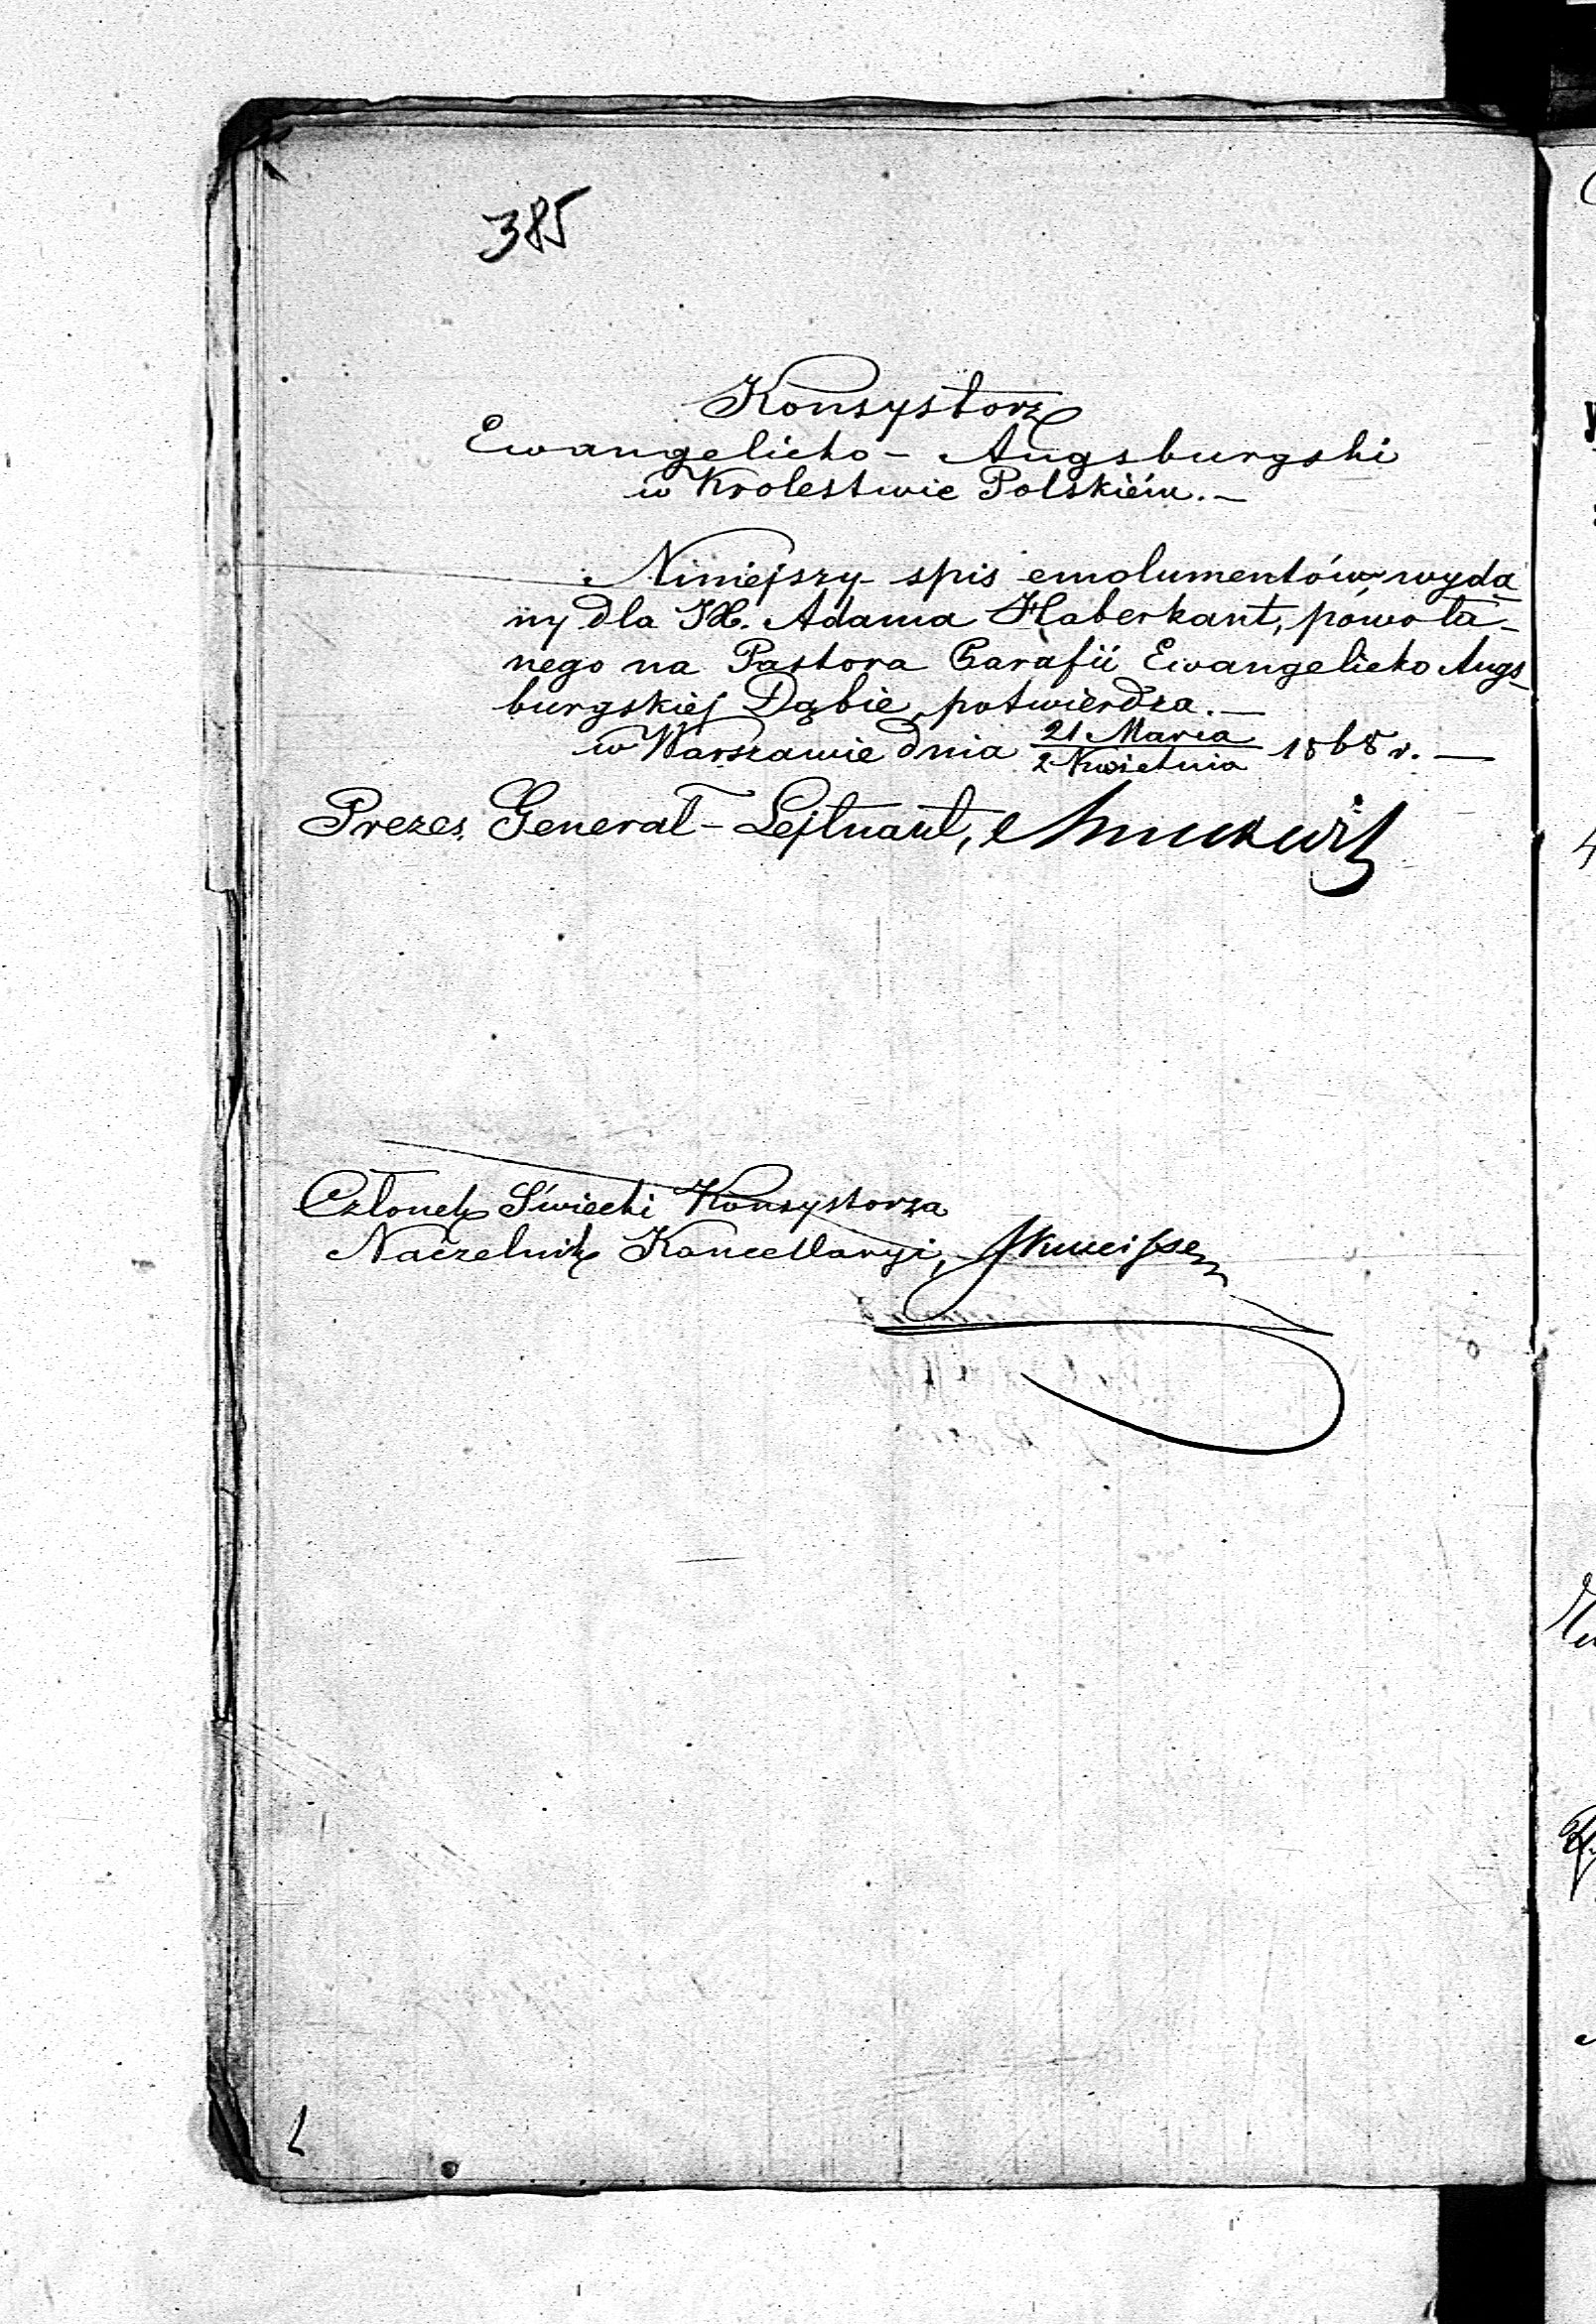 385
Konsystorz
Ewangelicko - Augsburgski
w Krolestwie Polskiém. —
Niniejszy spis emolumentów wyda
ny dla JX. Adama Haberkant, powoła-
nego na Pastora Parafii Ewangelicko Augs-
burgskiej Dąbie, potwierdza. —
w Warszawie dnia 21 Marca / 2 Kwietnia 1868 r. —
Prezes, Generał - Lejtnant,
Członek Świecki Konsystorza
Naczelnik Kancellaryi,